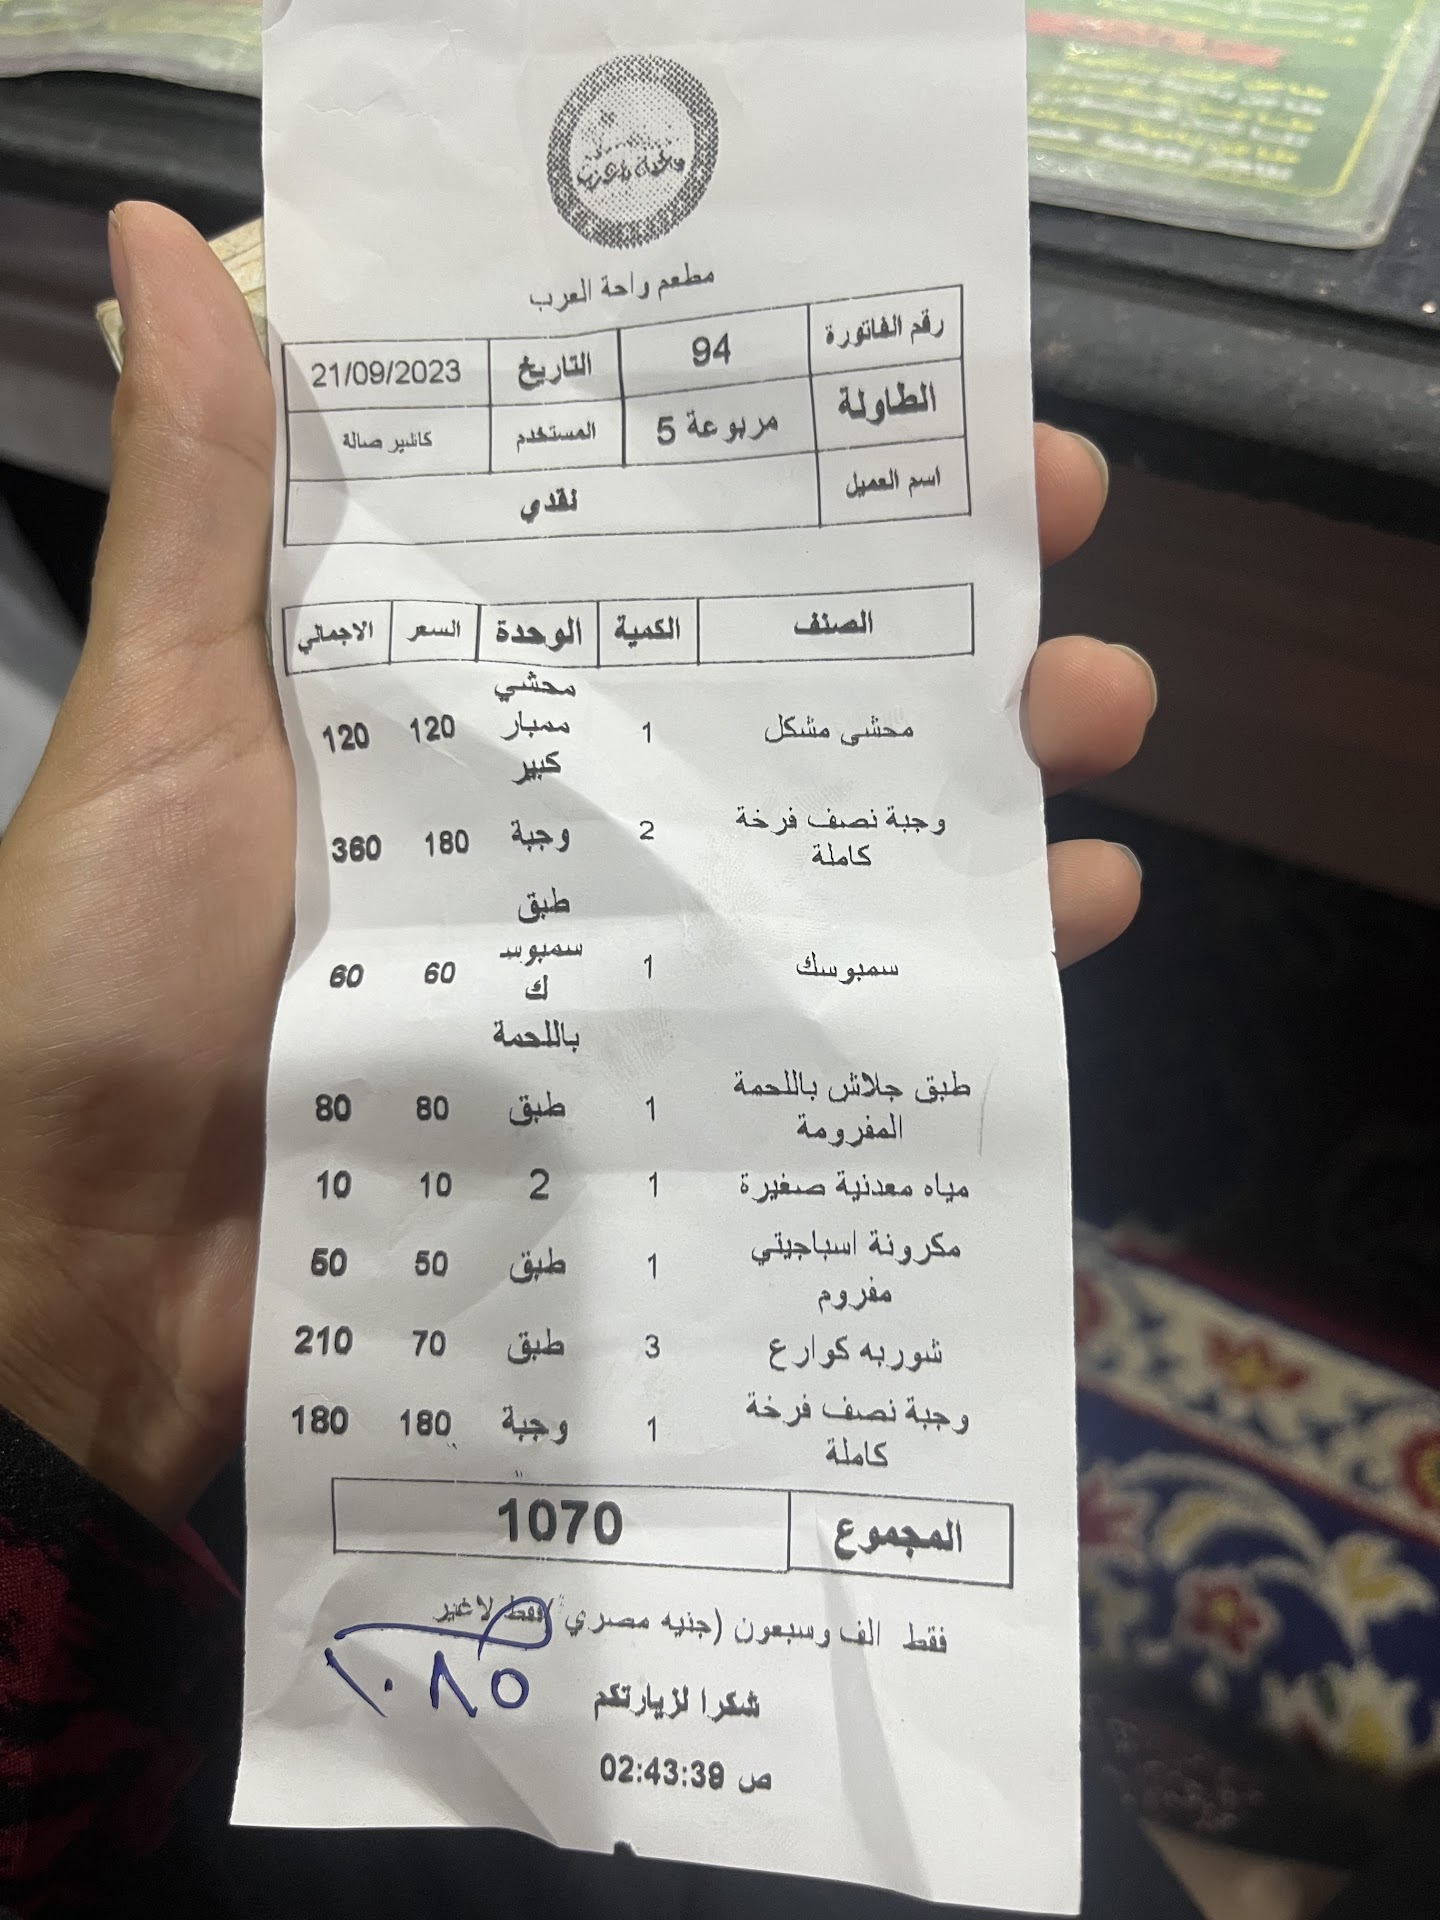 واحة العرب
مطعم واحة العرب
رقم الفاتورة 94 التاريخ 21/09/2023
الطاولة مربوعة 5 المستخدم كاشير صالة
اسم العميل نقدي
الصنف الكمية الوحدة السعر الاجمالي
محشى مشكل 1 محشي ممبار كبير 120 120
وجبة نصف فرخة كاملة 2 وجبة 180 360
سمبوسك 1 طبق سمبوسك باللحمة 60 60
طبق جلاش باللحمة المفرومة 1 طبق 80 80
مياه معدنية صغيرة 1 2 10 10
مكرونة اسباجيتي مفروم 1 طبق 50 50
شوربه كوارع 3 طبق 70 210
وجبة نصف فرخة كاملة 1 وجبة 180 180
المجموع 1070
فقط الف وسبعون (جنيه مصري )فقط لاغير
١٠٨٥
شكرا لزيارتكم
02:43:39 ص